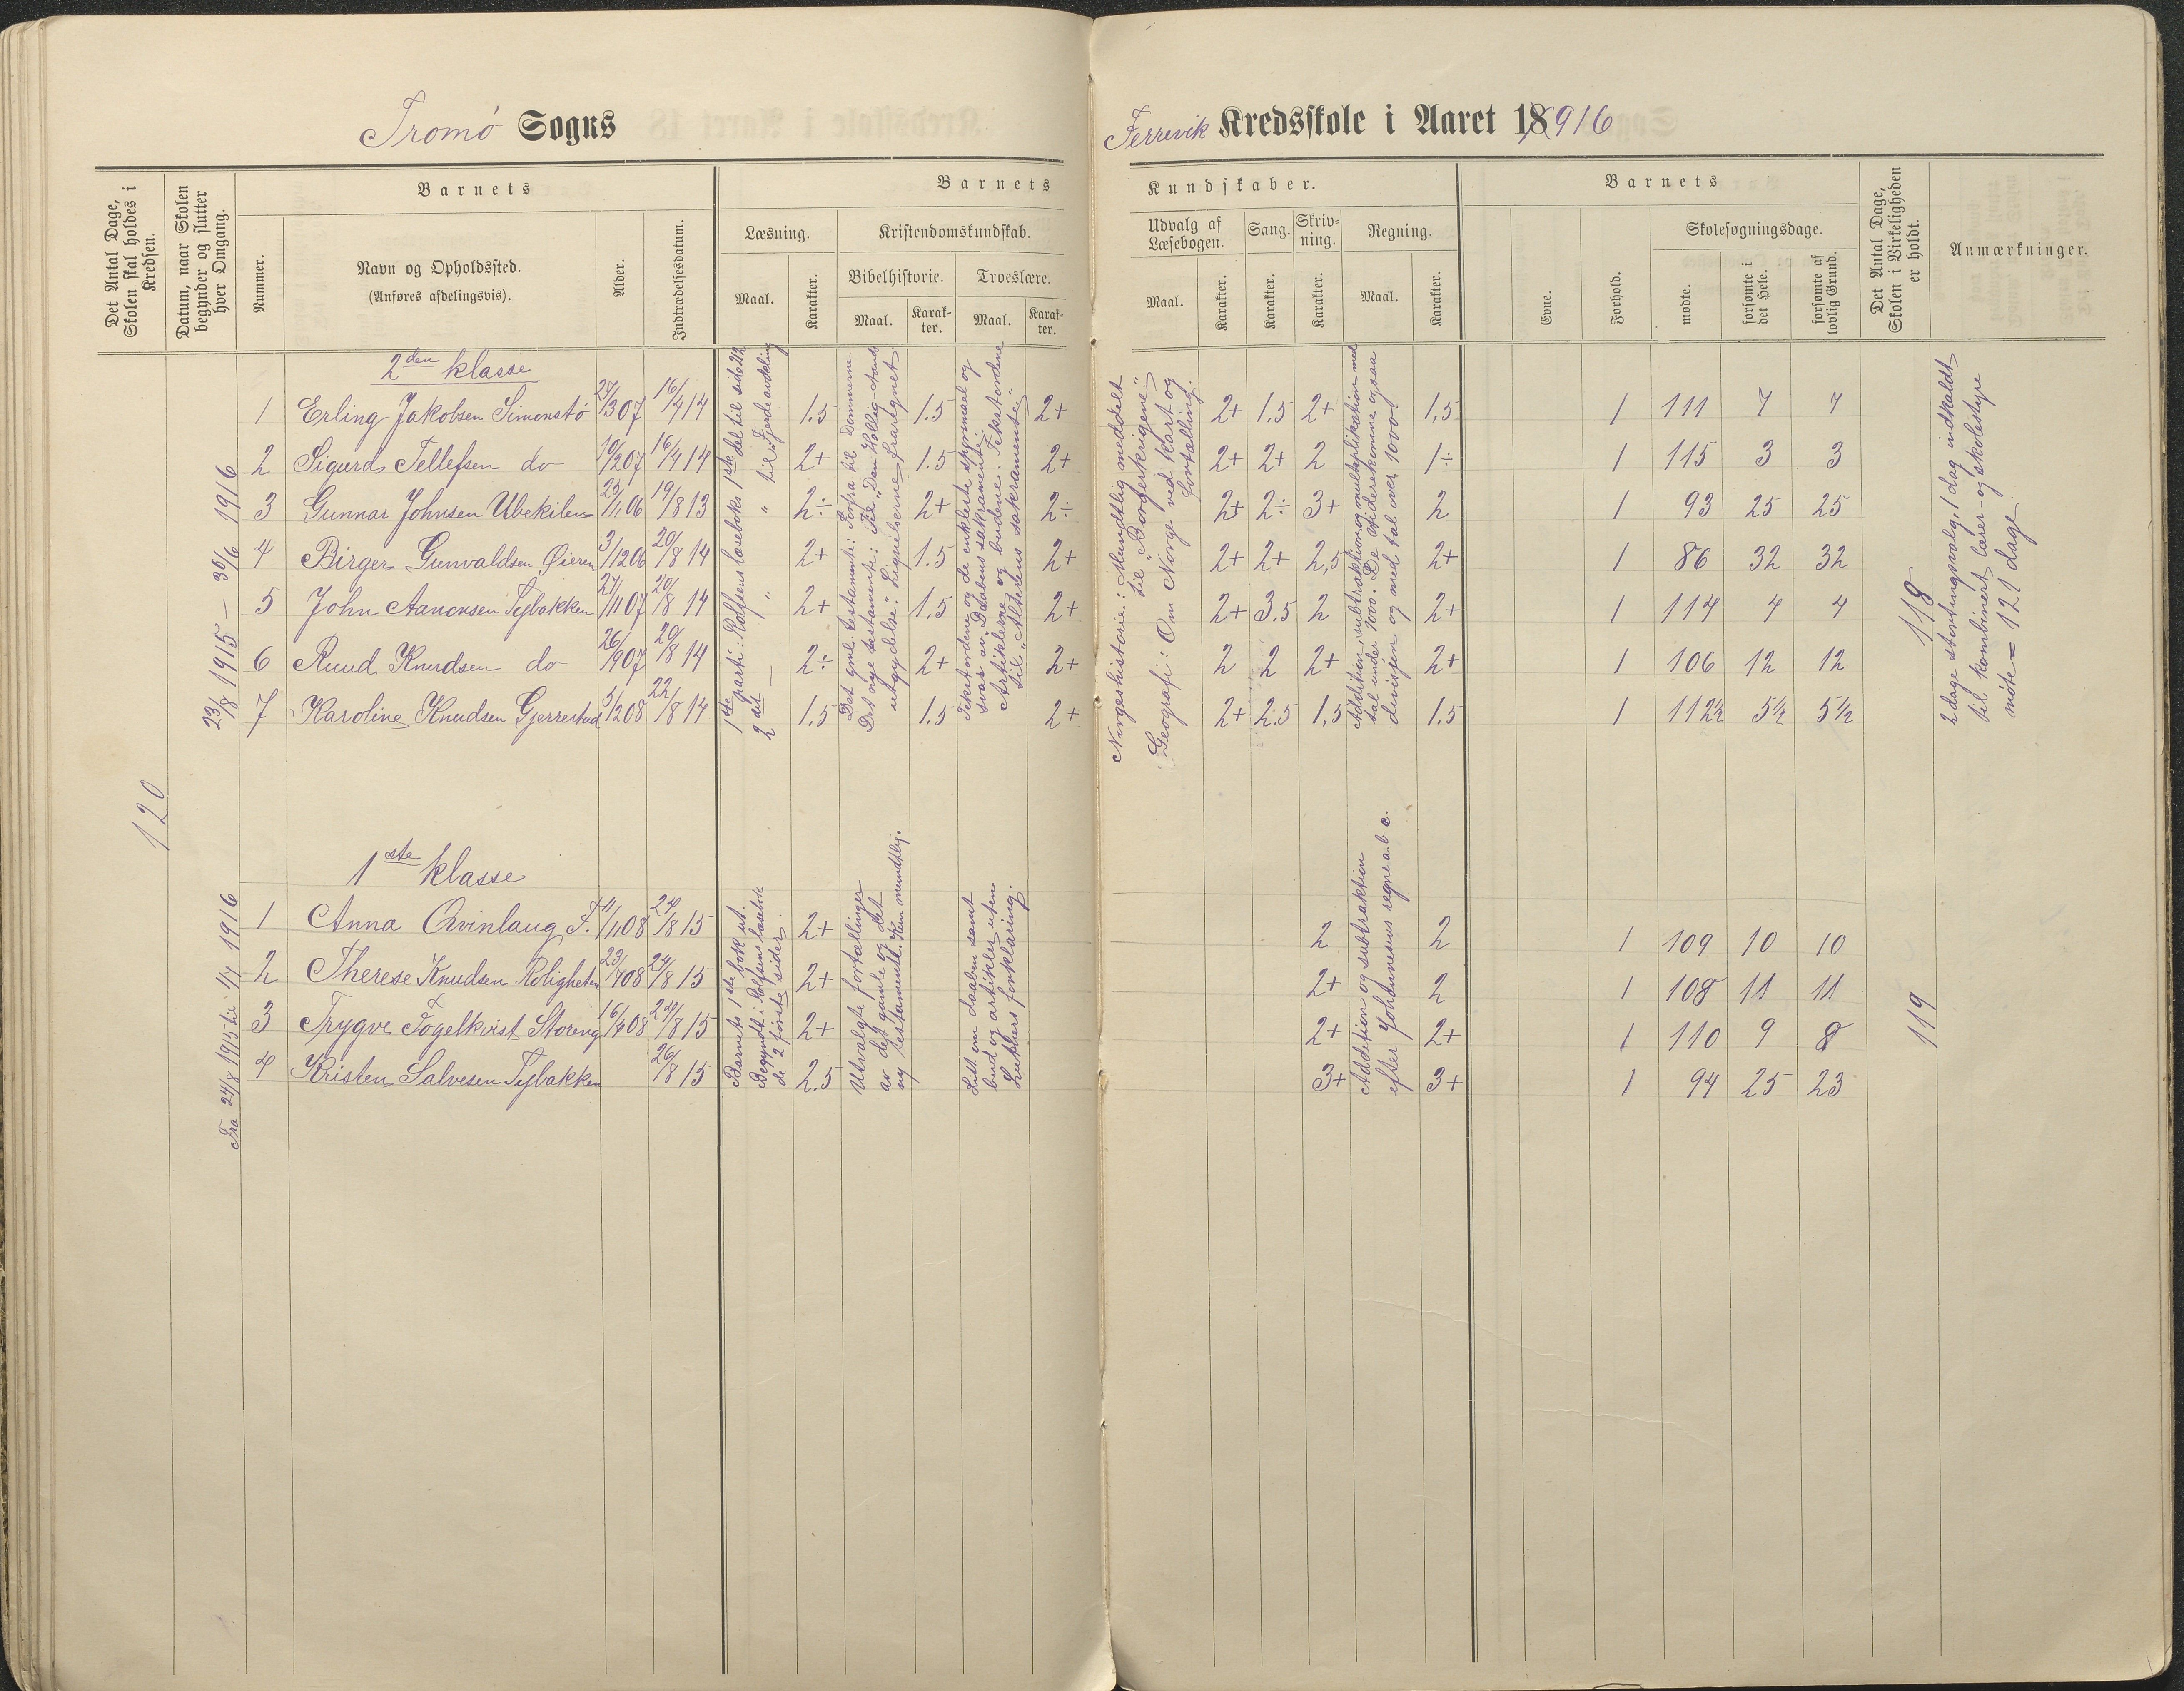 Tromö Sogns
Det Antal Dage, Skolen skal holdes i Kredsen.
Datum, naar Skolen begynder og slutter hver Omgang.
Barnets
Nummer.
Navn og Opholdssted.
(Anføres afdelingsvis).
Alder.
Indtrædelsesdatum.
Barnets
Læsning.
Maal.
Karakter.
Kristendomskundskab.
Bibelhistorie.
Maal.
Karakter.
Troeslære.
Maal.
Karakter.
120
23/8 1915 — 30/6 1916
2den klasse
1 Erling Jakobsen Simonstö 27/3 07 16/4 14 1.5 1.5 2+
2 Sigurd Tellefsen do 10/2 07 16/4 14 2+ 1.5 2+
3 Gunnar Johnsen Ubekilen 25/11 06 19/8 13 2÷ 2+ 2÷
4 Birger Gunvaldsen Øieren 3/12 06 20/8 14 2+ 1.5 2+
5 John Aanonsen Tybakken 21/11 07 20/8 14 2+ 1.5 2+
6 Ruud Knudsen do 26/9 07 20/8 14 2÷ 2+ 2+
7 Karoline Knudsen Gjerrestad 3/12 08 22/8 14 1.5 1.5 2+
1ste parti: Rolfsens læseboks 1ste del til side 212
2det — " — " til fjerde avdeling
Det gml. testamente: Forfra til Dommerne
Det nye testamente: Til „Den Hellig-Aands
utgydelse." Lignelserne fraregnet.
Tekstordene og de enkleste spørsmaal og
svar av Daabens sakramente.
Artiklerne og budene: Tekstordene
til „Alterens sakramente"
Fra 24/8 1915 til 1/7 1916
1ste klasse
1 Anna Qvinlaug F. 11/11 08 24/8 15 2+
2 Therese Knudsen Roligheten 23/7 08 24/8 15 2+
3 Trygve Fogelkvist Storeng 16/4 08 24/8 15 2+
4 Kristen Salvesen Tybakken 26/8 15 2.5
Barnets 1ste bok ut.
Begyndt i Rolfsens læsebok
de 2 første sider.
Utvalgte fortællinger
av det gamle og det
ny testamente. Kun mundtlig.
Litt om daaben samt
bud og artikler uten
Luthers forklaring.
Færrevik Kredsskole i Aaret 18916
Kundskaber.
Udvalg af Læsebogen.
Maal.
Karakter.
Sang.
Karakter.
Skrivning.
Karakter.
Regning.
Maal.
Karakter.
Barnets
Evne.
Forhold.
Skolesøgningsdage.
mødte.
forsømte i det Hele.
forsømte af lovlig Grund.
Det Antal Dage, Skolen i Virkeligheden er holdt.
Anmærkninger.
Norgeshistorie: Mundtlig meddelt
til „Borgerkrigene."
Geografi: Om Norge ved kart og
fortælling.
Addition, subtraktion og multiplikation med
tal under 1000. De viderekomne ogsaa
divisjon og med tal over 1000.
2+ 1.5 2+ 1,5 1 111 7 7
2+ 2+ 2 1÷ 1 115 3 3
2+ 2÷ 3+ 2 1 93 25 25
2+ 2+ 2,5 2+ 1 86 32 32
2+ 3.5 2 2+ 1 114 4 4
2 2 2+ 2+ 1 106 12 12
2+ 2.5 1,5 1.5 1 112½ 5½ 5½
118
2 dage stortingsvalg, 1 dag indkaldt
til kombinert lærer- og skolestyre
møte = 121 dage.
Addition og subtraktion
efter Johannesens regne a.b.c.
2 2 1 109 10 10
2+ 2 1 108 11 11
2+ 2+ 1 110 9 8
3+ 3+ 1 94 25 23
119